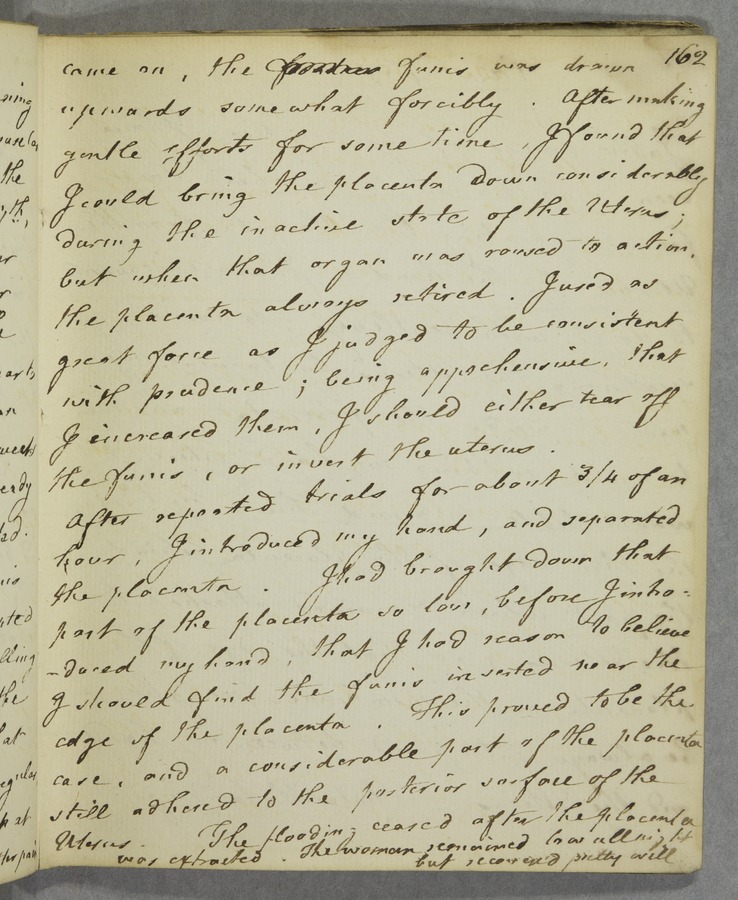 162
came on, the funis was drawn
upwards somewhat forcibly. After making
gentle efforts for some time, I found that
I could bring the placenta down considerably
during the inactive state of the Uterus;
but when that organ was roused to action,
the placenta always retired. I used as
great force as I judged to be consistent
with prudence; being apprehensive, that
I increased them, I should either tear off
the funis, or invert the uterus.
After repeated trials for about 3/4 of an
hour, I introduced my hand, and separated
the placenta. I had brought down that
part of the placenta so low, before I intro=
-duced my hand, that I had reason to believe
I should find the funis inserted near the
edge of the placenta. This proved to be the
case, and a considerable part of the placenta
still adhered to the posterior surface of the
Uterus. The flooding ceased after the placenta
was extracted. The woman remained low all night
but recovered pretty well